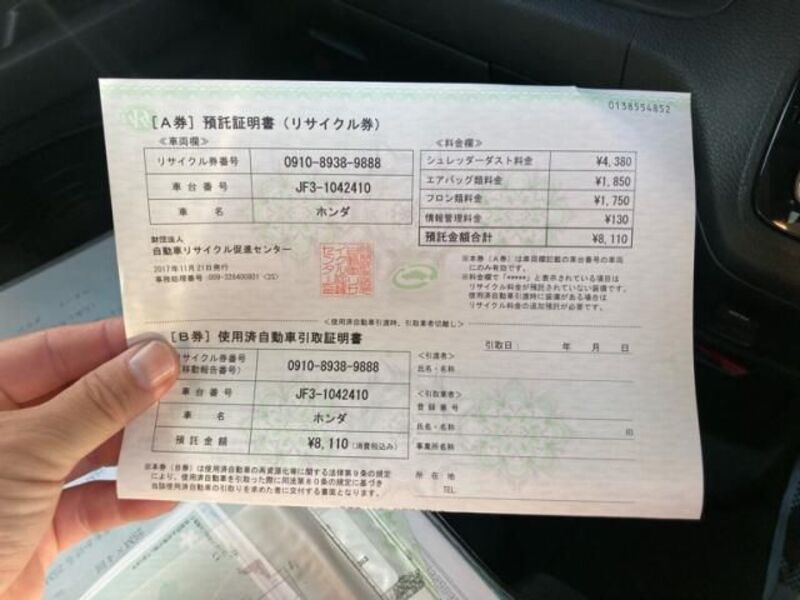 0138554852
[A券] 預託証明書(リサイクル券)
≪車両欄≫
リサイクル券番号 0910-8938-9888
車台番号 JF3-1042410
車名 ホンダ
≪料金欄≫
シュレッダーダスト料金 ¥4,380
エアバッグ類料金 ¥1,850
フロン類料金 ¥1,750
情報管理料金 ¥130
預託金額合計 ¥8,110
財団法人
自動車リサイクル促進センター
2017年11月21日発行
※本券(A券)は車両欄記載の車台番号の車両
にのみ有効です。
※料金欄で「*****」と表示されている項目は
リサイクル料金が預託されていない装備です。
使用済自動車引渡時に装備がある場合は
リサイクル料金の追加預託が必要です。
<使用済自動車引渡時、引取業者切離し>
[B券] 使用済自動車引取証明書
リサイクル券番号 0910-8938-9888
移動報告番号)
車台番号 JF3-1042410
車名 ホンダ
預託金額 ¥8,110 (消費税込み)
引取日: 年 月 日
<引渡者>
氏名・名称
<引取業者>
登録番号
氏名・名称 印
事業所名称
所在地
TEL
※本券(B券)は使用済自動車の再資源化等に関する法律第9条の規定
により、使用済自動車を引取った際に同法第80条の規定に基づき
当該使用済自動車の引取りを求めた者に交付する書面となります。